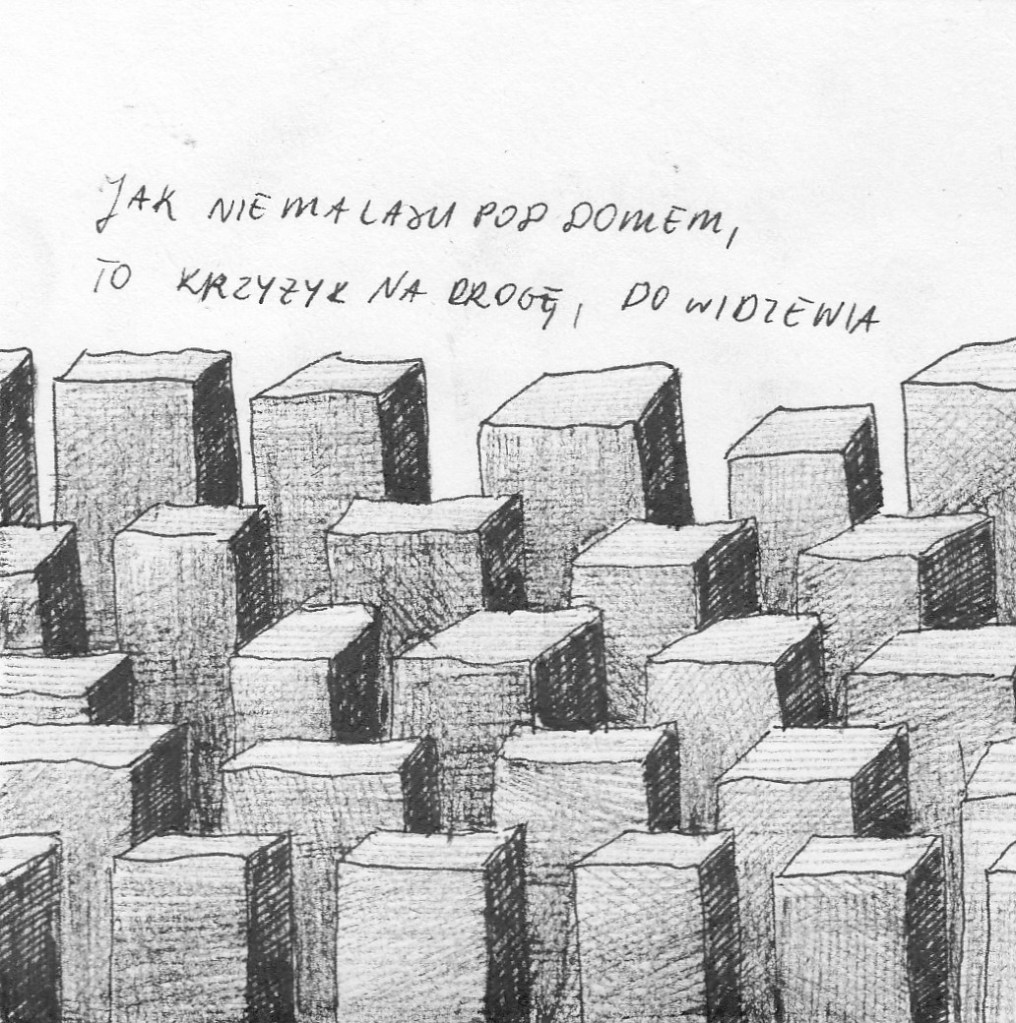 JAK NIE MA LASU POD DOMEM,
TO KRZYŻYK NA DROGĘ, DO WIDZEWIA